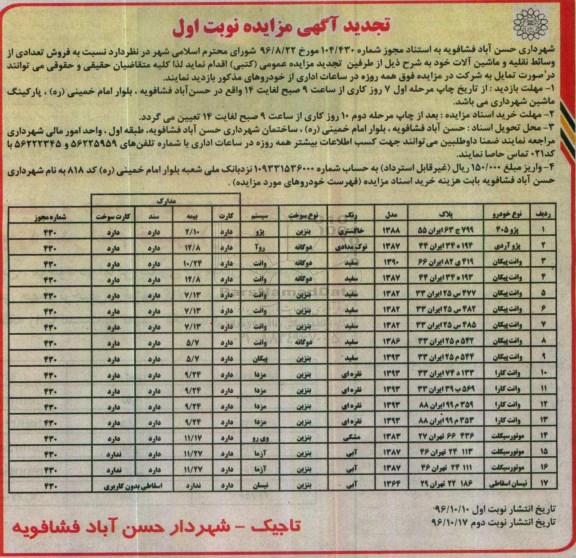 تجدید آگهی مزایده نوبت اول
شهرداری حسن آباد فشافویه به استناد مجوز شماره ۱۰۴/۴۳۰ مورخ ۹۶/۸/۲۲ شورای محترم اسلامی شهر در نظردارد نسبت به فروش تعدادی از
وسائط نقلیه و ماشین آلات خود به شرح ذیل از طرفین تجدید مزایده عمومی (کتبی) اقدام نماید لذا کلیه متقاضیان حقیقی و حقوقی می توانند
در صورت تمایل به شرکت در مزایده فوق همه روزه در ساعات اداری از خودروهای مذکور بازدید نمایند.
۱- مهلت بازدید : از تاریخ چاپ مرحله اول ۷ روز کاری از ساعت ۹ صبح لغایت ۱۴ واقع در حسن آباد فشافویه ، بلوار امام خمینی (ره) ، پارکینگ
ماشین شهرداری می باشد.
۲- مهلت خرید اسناد مزایده : بعد از چاپ مرحله دوم ۱۰ روز کاری از ساعت ۹ صبح لغایت ۱۴ تعیین می گردد.
۳- محل تحویل اسناد : حسن آباد فشافویه ، بلوار امام خمینی (ره) ، ساختمان شهرداری حسن آباد فشافویه، طبقه اول ، واحد امور مالی شهرداری
مراجعه نمایند ضمنا داوطلبین می توانند جهت کسب اطلاعات بیشتر همه روزه در ساعات اداری با شماره تلفن‌های ۵۶۲۲۵۹۵۹ و ۵۶۲۲۲۳۴۵ با
کد۰۲۱ تماس حاصل نمایند.
۴- واریز مبلغ ۱۵۰/۰۰۰ ریال (غیرقابل استرداد) به حساب شماره ۱۰۹۳۳۱۵۳۶۰۰۰ نزدبانک ملی شعبه بلوار امام خمینی (ره) کد ۸۱۸ به نام شهرداری
حسن آباد فشافویه بابت هزینه خرید اسناد مزایده (فهرست خودروهای مورد مزایده) .
مدارک
ردیف نوع خودرو پلاک مدل رنگ نوع سوخت سیستم کارت بیمه سند کارت سوخت شماره مجوز
۱ پژو ۴۰۵ ۷۹۹ ج ۶۳ ایران ۵۵ ۱۳۸۸ خاکستری بنزین پژو دارد ۲/۱۰ دارد دارد ۴۳۰
۲ پژو آردی ۱۹۴ ه ۳۴ ایران ۴۴ ۱۳۸۷ نوک مدادی دوگانه روآ دارد ۱۲/۸ دارد دارد ۴۳۰
۳ وانت پیکان ۴۱۹ ی ۸۲ ایران ۶۶ ۱۳۹۰ سفید دوگانه وانت دارد ۱۰/۲۴ دارد دارد ۴۳۰
۴ وانت پیکان ۱۹۳ ه ۳۴ ایران ۴۴ ۱۳۸۷ سفید دوگانه وانت دارد ۱۲/۸ دارد دارد ۴۳۰
۵ وانت پیکان ۴۷۷ س ۲۵ ایران ۳۳ ۱۳۸۲ سفید بنزین وانت دارد ۷/۱۳ دارد دارد ۴۳۰
۶ وانت پیکان ۴۸۲ س ۲۵ ایران ۳۳ ۱۳۸۲ سفید بنزین وانت دارد ۷/۱۳ دارد دارد ۴۳۰
۷ وانت پیکان ۴۸۵ س ۲۵ ایران ۳۳ ۱۳۸۲ سفید بنزین وانت دارد ۷/۱۳ دارد دارد ۴۳۰
۸ وانت پیکان ۵۴۲ م ۲۵ ایران ۳۳ ۱۳۸۶ سفید دوگانه وانت دارد ۵/۷ دارد دارد ۴۳۰
۹ وانت پیکان ۵۴۴ م ۲۵ ایران ۳۳ ۱۳۹۳ سفید بنزین پیکان دارد ۵/۷ دارد دارد ۴۳۰
۱۰ وانت کارا ۱۳۳ د ۷۴ ایران ۳۳ ۱۳۹۳ نقره ای بنزین مزدا دارد ۹/۲۴ دارد دارد ۴۳۰
۱۱ وانت کارا ۵۶۹ ب ۳۹ ایران ۳۳ ۱۳۹۳ نقره ای بنزین مزدا دارد ۹/۲۴ دارد دارد ۴۳۰
۱۲ وانت کارا ۳۵۹ م ۹۹ ایران ۸۸ ۱۳۹۳ نقره ای بنزین مزدا دارد ۹/۲۴ دارد دارد ۴۳۰
۱۳ وانت کارا ۳۵۳ م ۹۹ ایران ۸۸ ۱۳۹۳ نقره ای بنزین مزدا دارد ۹/۲۴ دارد دارد ۴۳۰
۱۴ موتورسیکلت ۴۳۶ ۶۶ تهران ۲۷ ۱۳۸۳ مشکی بنزین وی رو دارد ۱۱/۱۷ دارد دارد ۴۳۰
۱۵ موتورسیکلت ۱۱۳ ۲۴ تهران ۴۶ ۱۳۸۷ آبی بنزین آزما دارد ۱۱/۲۷ دارد ندارد ۴۳۰
۱۶ موتورسیکلت ۱۱۱ ۲۴ تهران ۴۶ ۱۳۸۷ آبی بنزین آزما دارد ۱۱/۲۷ دارد ندارد ۴۳۰
۱۷ نیسان اسقاطی ۱۸۶ ۲۲ تهران ۲۹ ۱۳۶۴ آبی بنزین نیسان دارد ندارد دارد اسقاطی بدون کاربری ۴۳۰
تاریخ انتشار نوبت اول ۹۶/۱۰/۱۰
تاریخ انتشار نوبت دوم ۹۶/۱۰/۱۷
تاجیک – شهردار حسن آباد فشافویه